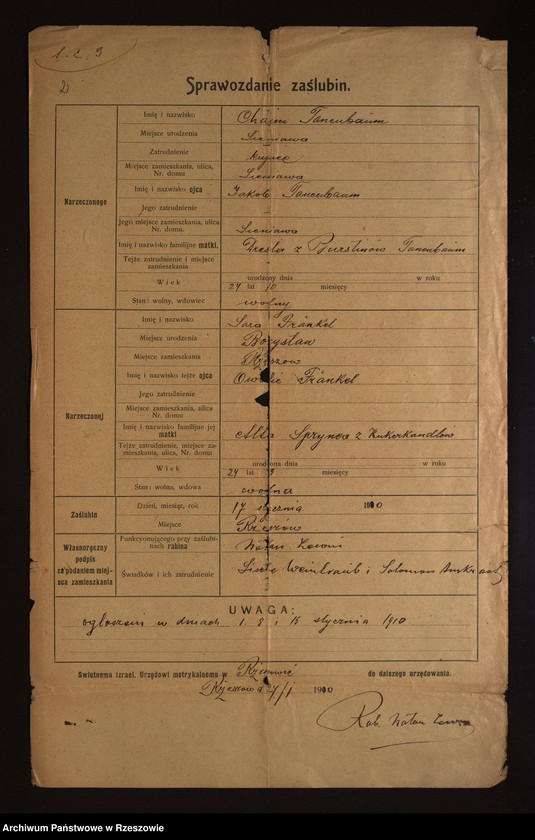 l. c. 3
2)
Sprawozdanie zaślubin.
Narzeczonego
Imię i nazwisko Chaim Tanenbaum
Miejsce urodzenia Sieniawa
Zatrudnienie
Miejsce zamieszkania, ulica, Nr. domu Sieniawa
Imię i nazwisko ojca Jakob Tanenbaum
Jego zatrudnienie
Jego miejsce zamieszkania, ulica Nr. domu. Sieniawa
Imię i nazwisko familijne matki. Dresla z Bursztinów Tanenbaum
Tejże zatrudnienie i miejsce zamieszkania
Wiek urodzony dnia w roku
24 lat 10 miesięcy
Stan: wolny, wdowiec wolny
Narzeczonej
Imię i nazwisko Sara Fränkel
Miejsce urodzenia Borysław
Miejsce zamieszkania Rzeszow
Imię i nazwisko tejże ojca Fränkel
Jego zatrudnienie
Miejsce zamieszkania, ulica Nr. domu
Imię i nazwisko familijne jej matki Alta Sprynca z Kukerkandlów
Tejże zatrudnienie, miejsce zamieszkania, ulica, Nr. domu
Wiek urodzona dnia w roku
24 lat 3 miesięcy
Stan: wolna, wdowa wolna
Zaślubin
Dzień, miesiąc, rok 17 stycznia 1910
Miejsce Rzeszów
Własnoręczny podpis z podaniem miejsca zamieszkania
Funkcyonującego przy zaślubinach rabina Natan Lewin
Świadków i ich zatrudnienie Weintraub i Salomon
UWAGA:
ogłoszeni w dniach 1. 8 i 15 stycznia 1910
Świetnemu izrael. Urzędowi metrykalnemu w Rzeszowie do dalszego urzędowania.
Rzeszow d 17/I 1910
Rab. Natan Lewin
Archiwum Państwowe w Rzeszowie